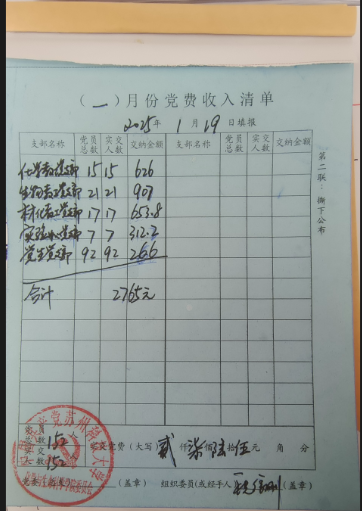 （一）月份党费收入清单
2025年 1 月 19 日填报
支部名称 党员总数 实交人数 交纳金额 支部名称 党员总数 实交人数 交纳金额
化学教工支部 15 15 626
生物教工支部 21 21 907
材化教工党支部 17 17 653.8
实验中心支部 7 7 312.2
学生党支部 92 92 266
合计 2765元
第二联：撕下公布
党员总数 152
实交人数 152
实交党费（大写）贰仟柒佰陆拾伍元 角 分
（盖章） 组织委员（或经手人） （盖章）